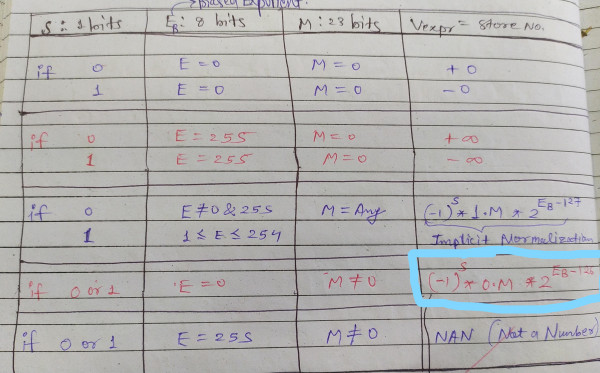 Biased Exponent.
S : 1 bits E_B : 8 bits M : 23 bits Vexpr = Store No.
if 0 E = 0 M = 0 + 0
1 E = 0 M = 0 - 0
if 0 E = 255 M = 0 + ∞
1 E = 255 M = 0 - ∞
if 0 E ≠ 0 & 255 M = Any (-1)^S * 1.M * 2^(E_B-127)
1 1 ≤ E ≤ 254 Implicit Normalization
if 0 or 1 E = 0 M ≠ 0 (-1)^S * 0.M * 2^(E_B-126)
if 0 or 1 E = 255 M ≠ 0 NAN (Not a Number)